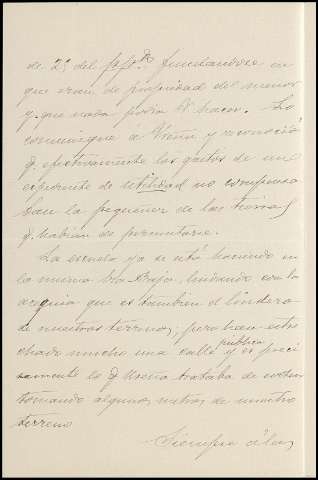 de 2ª del fundandose en
que eran de propiedad del menor
y que nada podia V. hacer. Lo
comuniqué a Ureña y reconoció
q. efectivamente los gastos de un
expediente de utilidad no compensa
ban la pequeñez de las tierras
q. habian de permutarse.
La escuela ya se está haciendo en
la misma Era Bajo, lindando con la
acequia que es tambien el lindero
de nuestros terrenos; pero han estre
chado mucho una calle publica y es preci
samente lo q Ureña trataba de evitar
tomando algunos metros de nuestro
terreno
Siempre á las